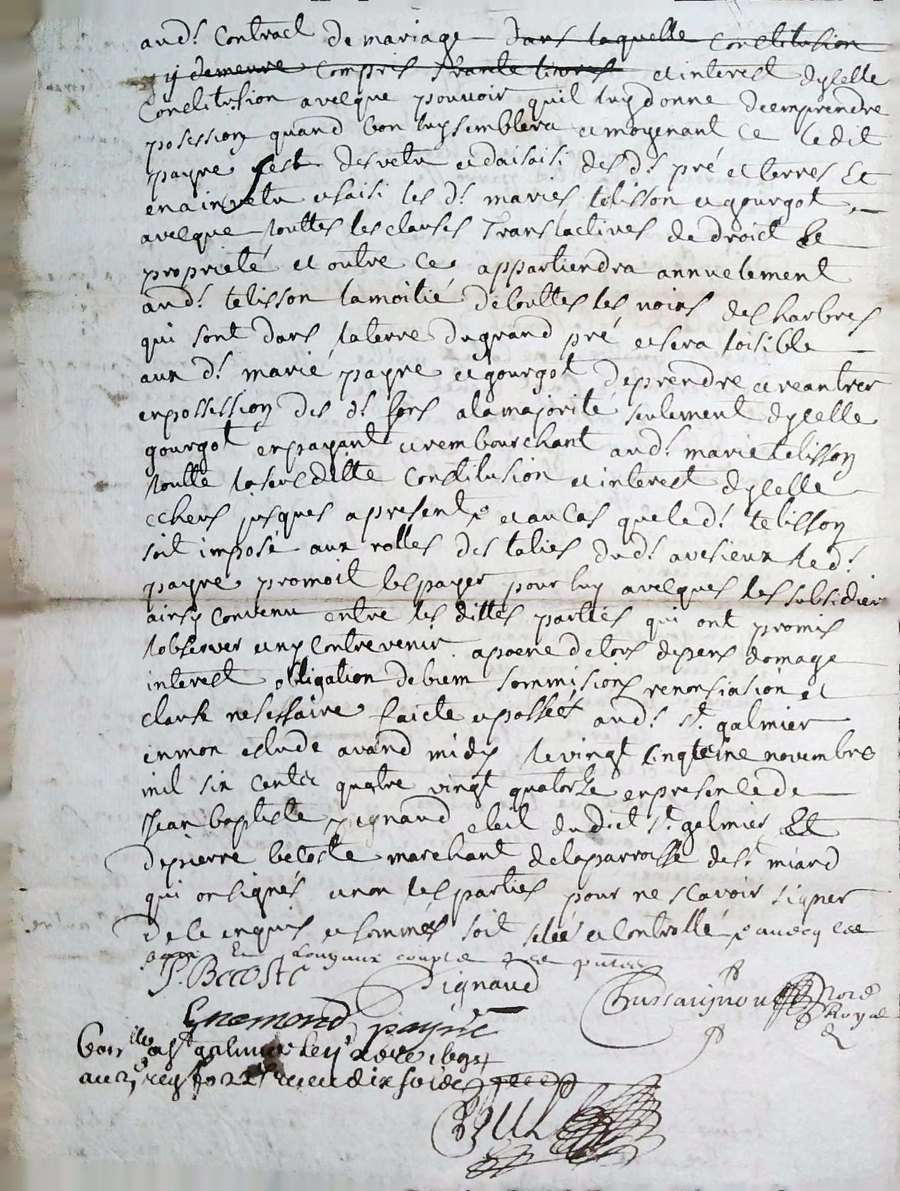 aud.t Contract de mariage dans laquelle Constitusion
y demeure compris trante livres et interest dycelle
Constitusion avelque pouvoir quil luy donne de emprendre
posession quand bon luy semblera et moyenant ce le dit
payre sest desvetu et daisaisi des d.t pré et terres Et
en a invetu et saisi les d.t mariés telisson et gourgot
avelque touttes les clauses Translactives de droict de
proprieté et outre ce appartiendra annuelement
aud.t telisson la moitié de touttes les noix des harbres
qui sont dans la terre du grand pré et sera loisible
aux d.t marié payre et gourgot de prendre et reantrer
en possession des d.t fons a la majorité seulement dycelle
gourgot en payant et rembourchant aud.t marié telisson
toutte la susditte Constitusion et interest dycelle
echeus jusques a present et au cas que le d.t telisson
soit imposé aux rolles des talies dud.t avesieux led.t
payre promoit les payer pour luy avelques les subsidier
ainsy convenu entre les dittes parties qui ont promis
lobserver et ny contrevenir a poene de tous depens domage
interest obligation de biem sommisions renonsiasion et
clause nesessaire faicte et passée aud.t S.t galmier
en mon estude avand midy le vingt cinqieme novembre
mil six centz quatre vingt quatorze en presence de
Jean baptiste pignaud clerc dudict S.t galmier Et
de pierre becoste marchant de la parroisse de S.t miard
qui on signés et non les parties pour ne scavoir signer
de ce enquis et sommés soit scelé et controllé
P. Becoste Pignaud
Chussaignon No.re Royal
Gnemond payre